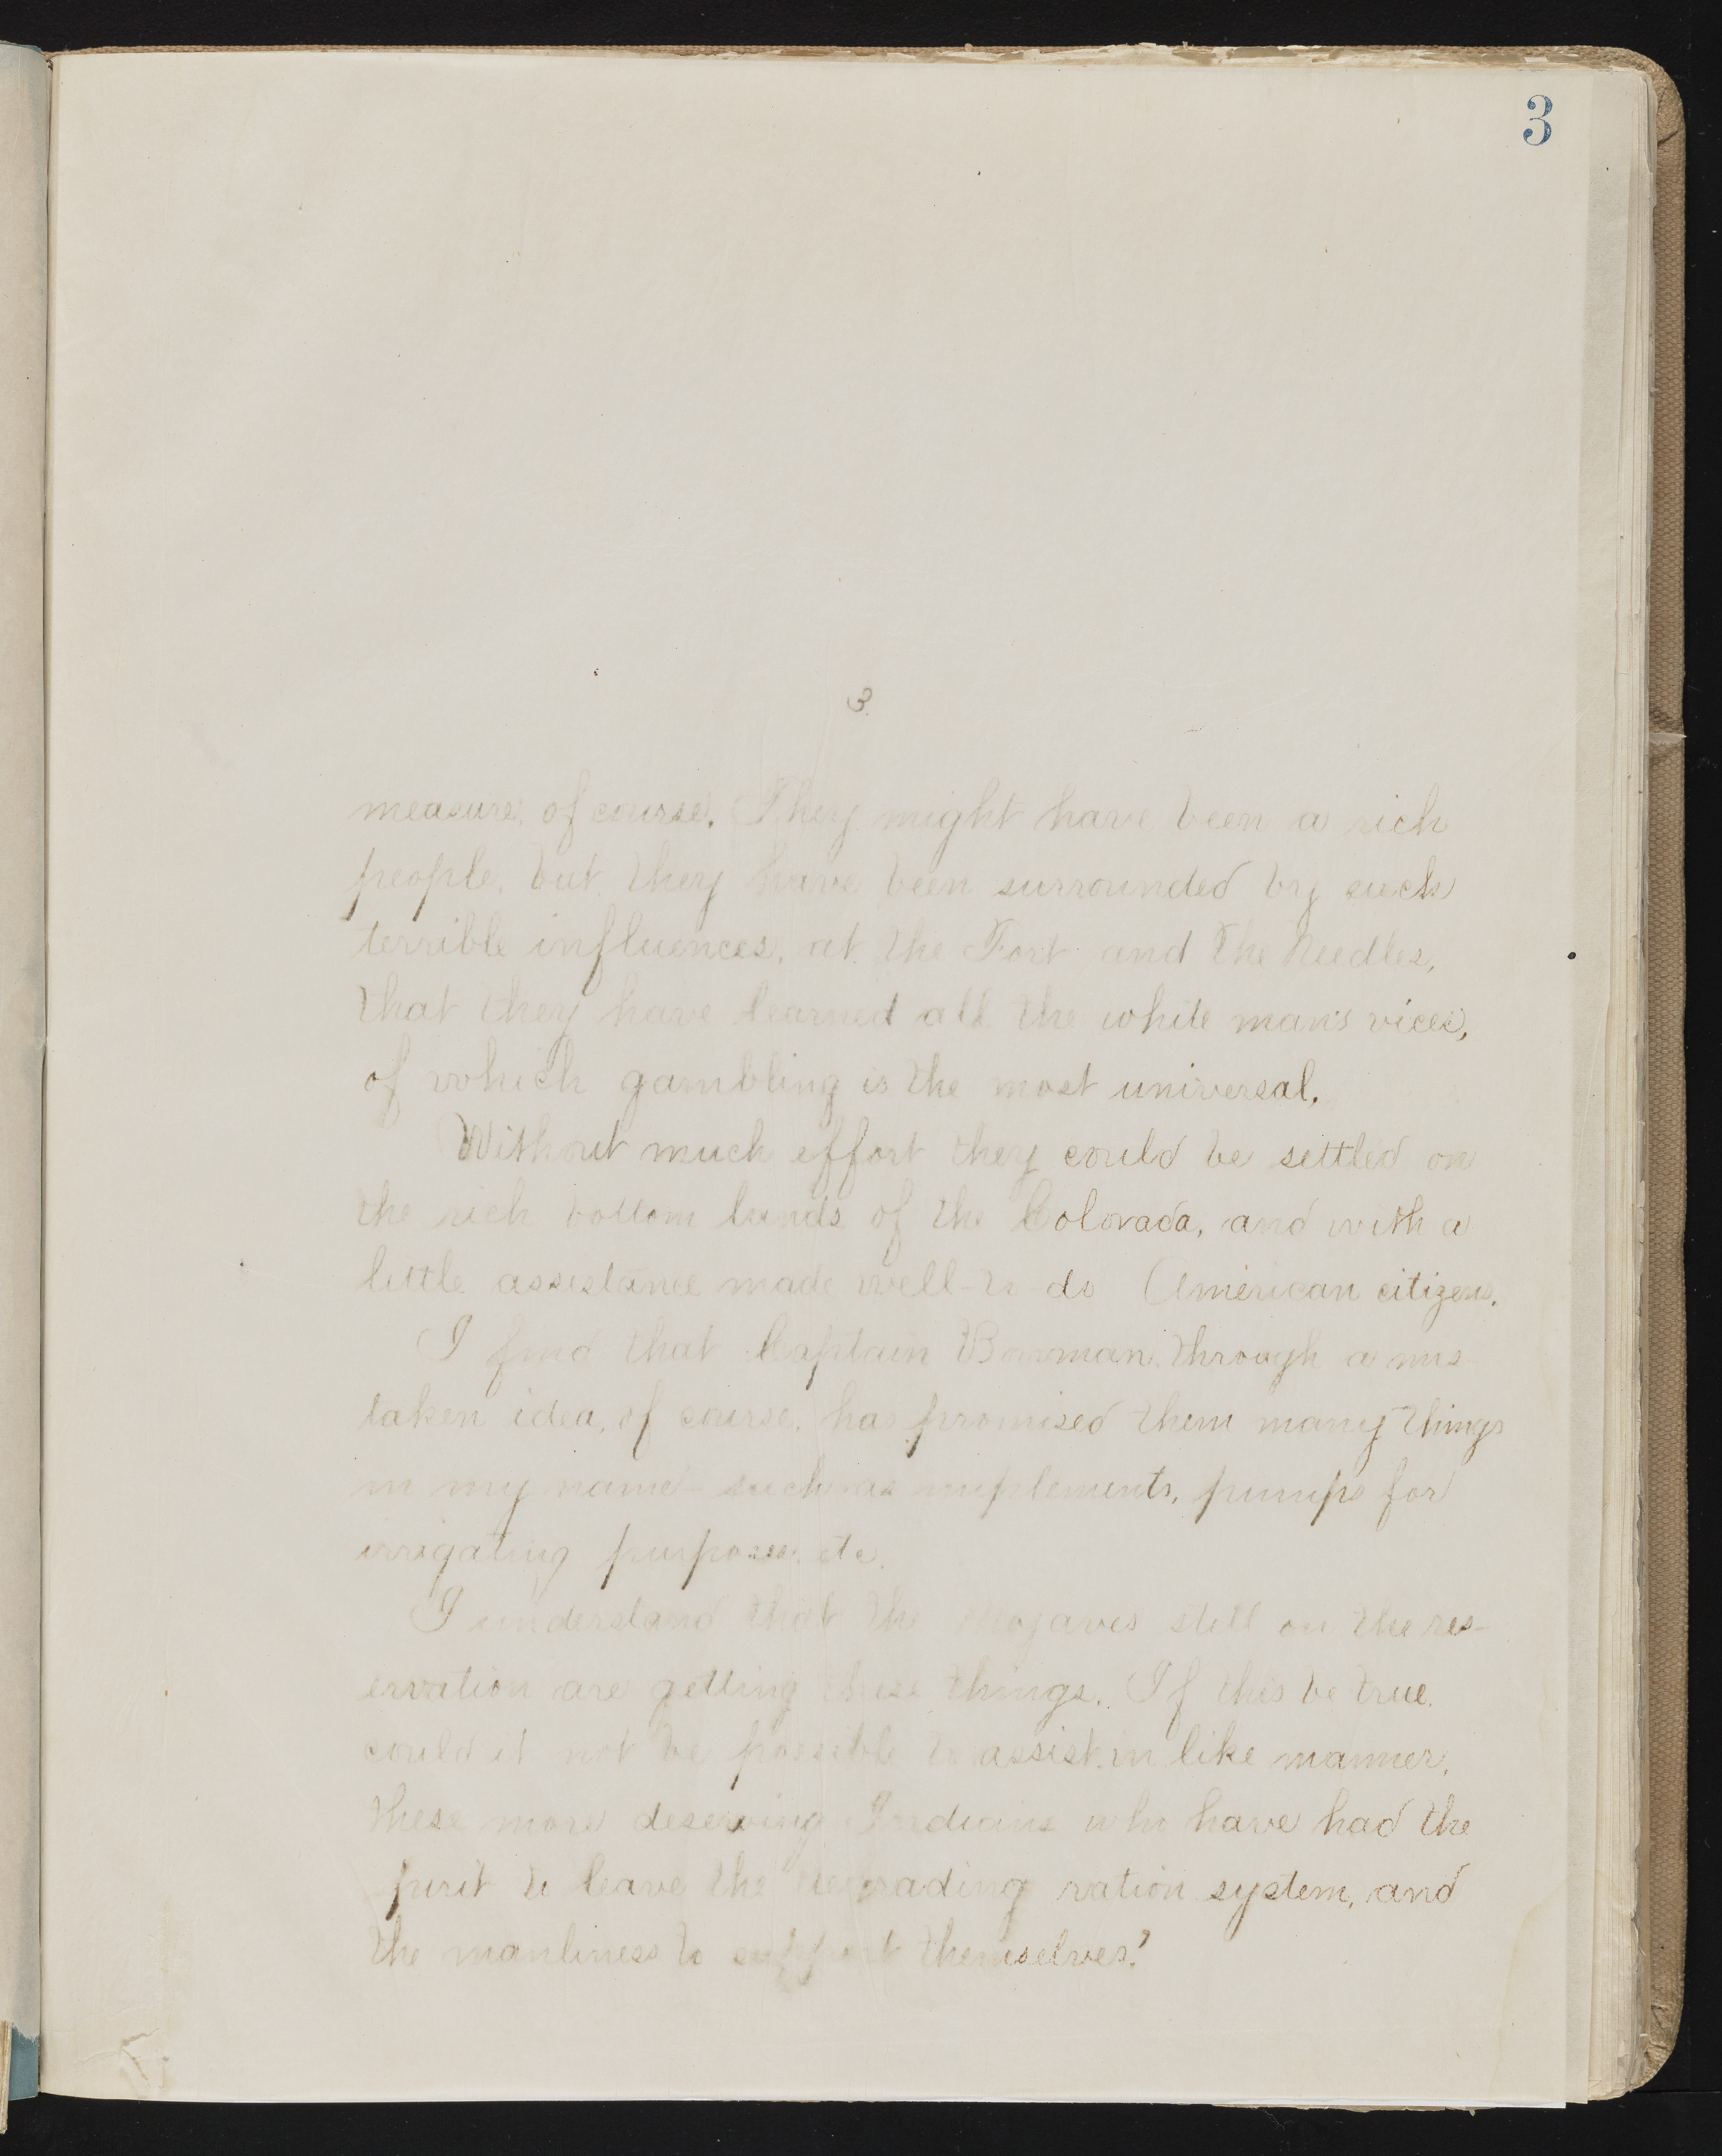 3
3.
measure, of course. They might have been a rich
people, but they have been surrounded by such
terrible influences, at the Fort and The Needles,
that they have learned all the white man's vices,
of which gambling is the most universal.
Without much effort they could be settled on
the rich bottom lands of the Colorada, and with a
little assistance made well-to do American citizens.
I find that Captain Bowman, through a mis
taken idea, of course, has promised them many things
in my name - such as implements, pumps for
irrigating purposes, etc.
I understand that the Mojaves still on the res-
ervation are getting these things. If this be true,
could it not be possible to assist in like manner,
these more deserving Indians who have had the
spirit to leave the degrading ration system, and
the manliness to support themselves?